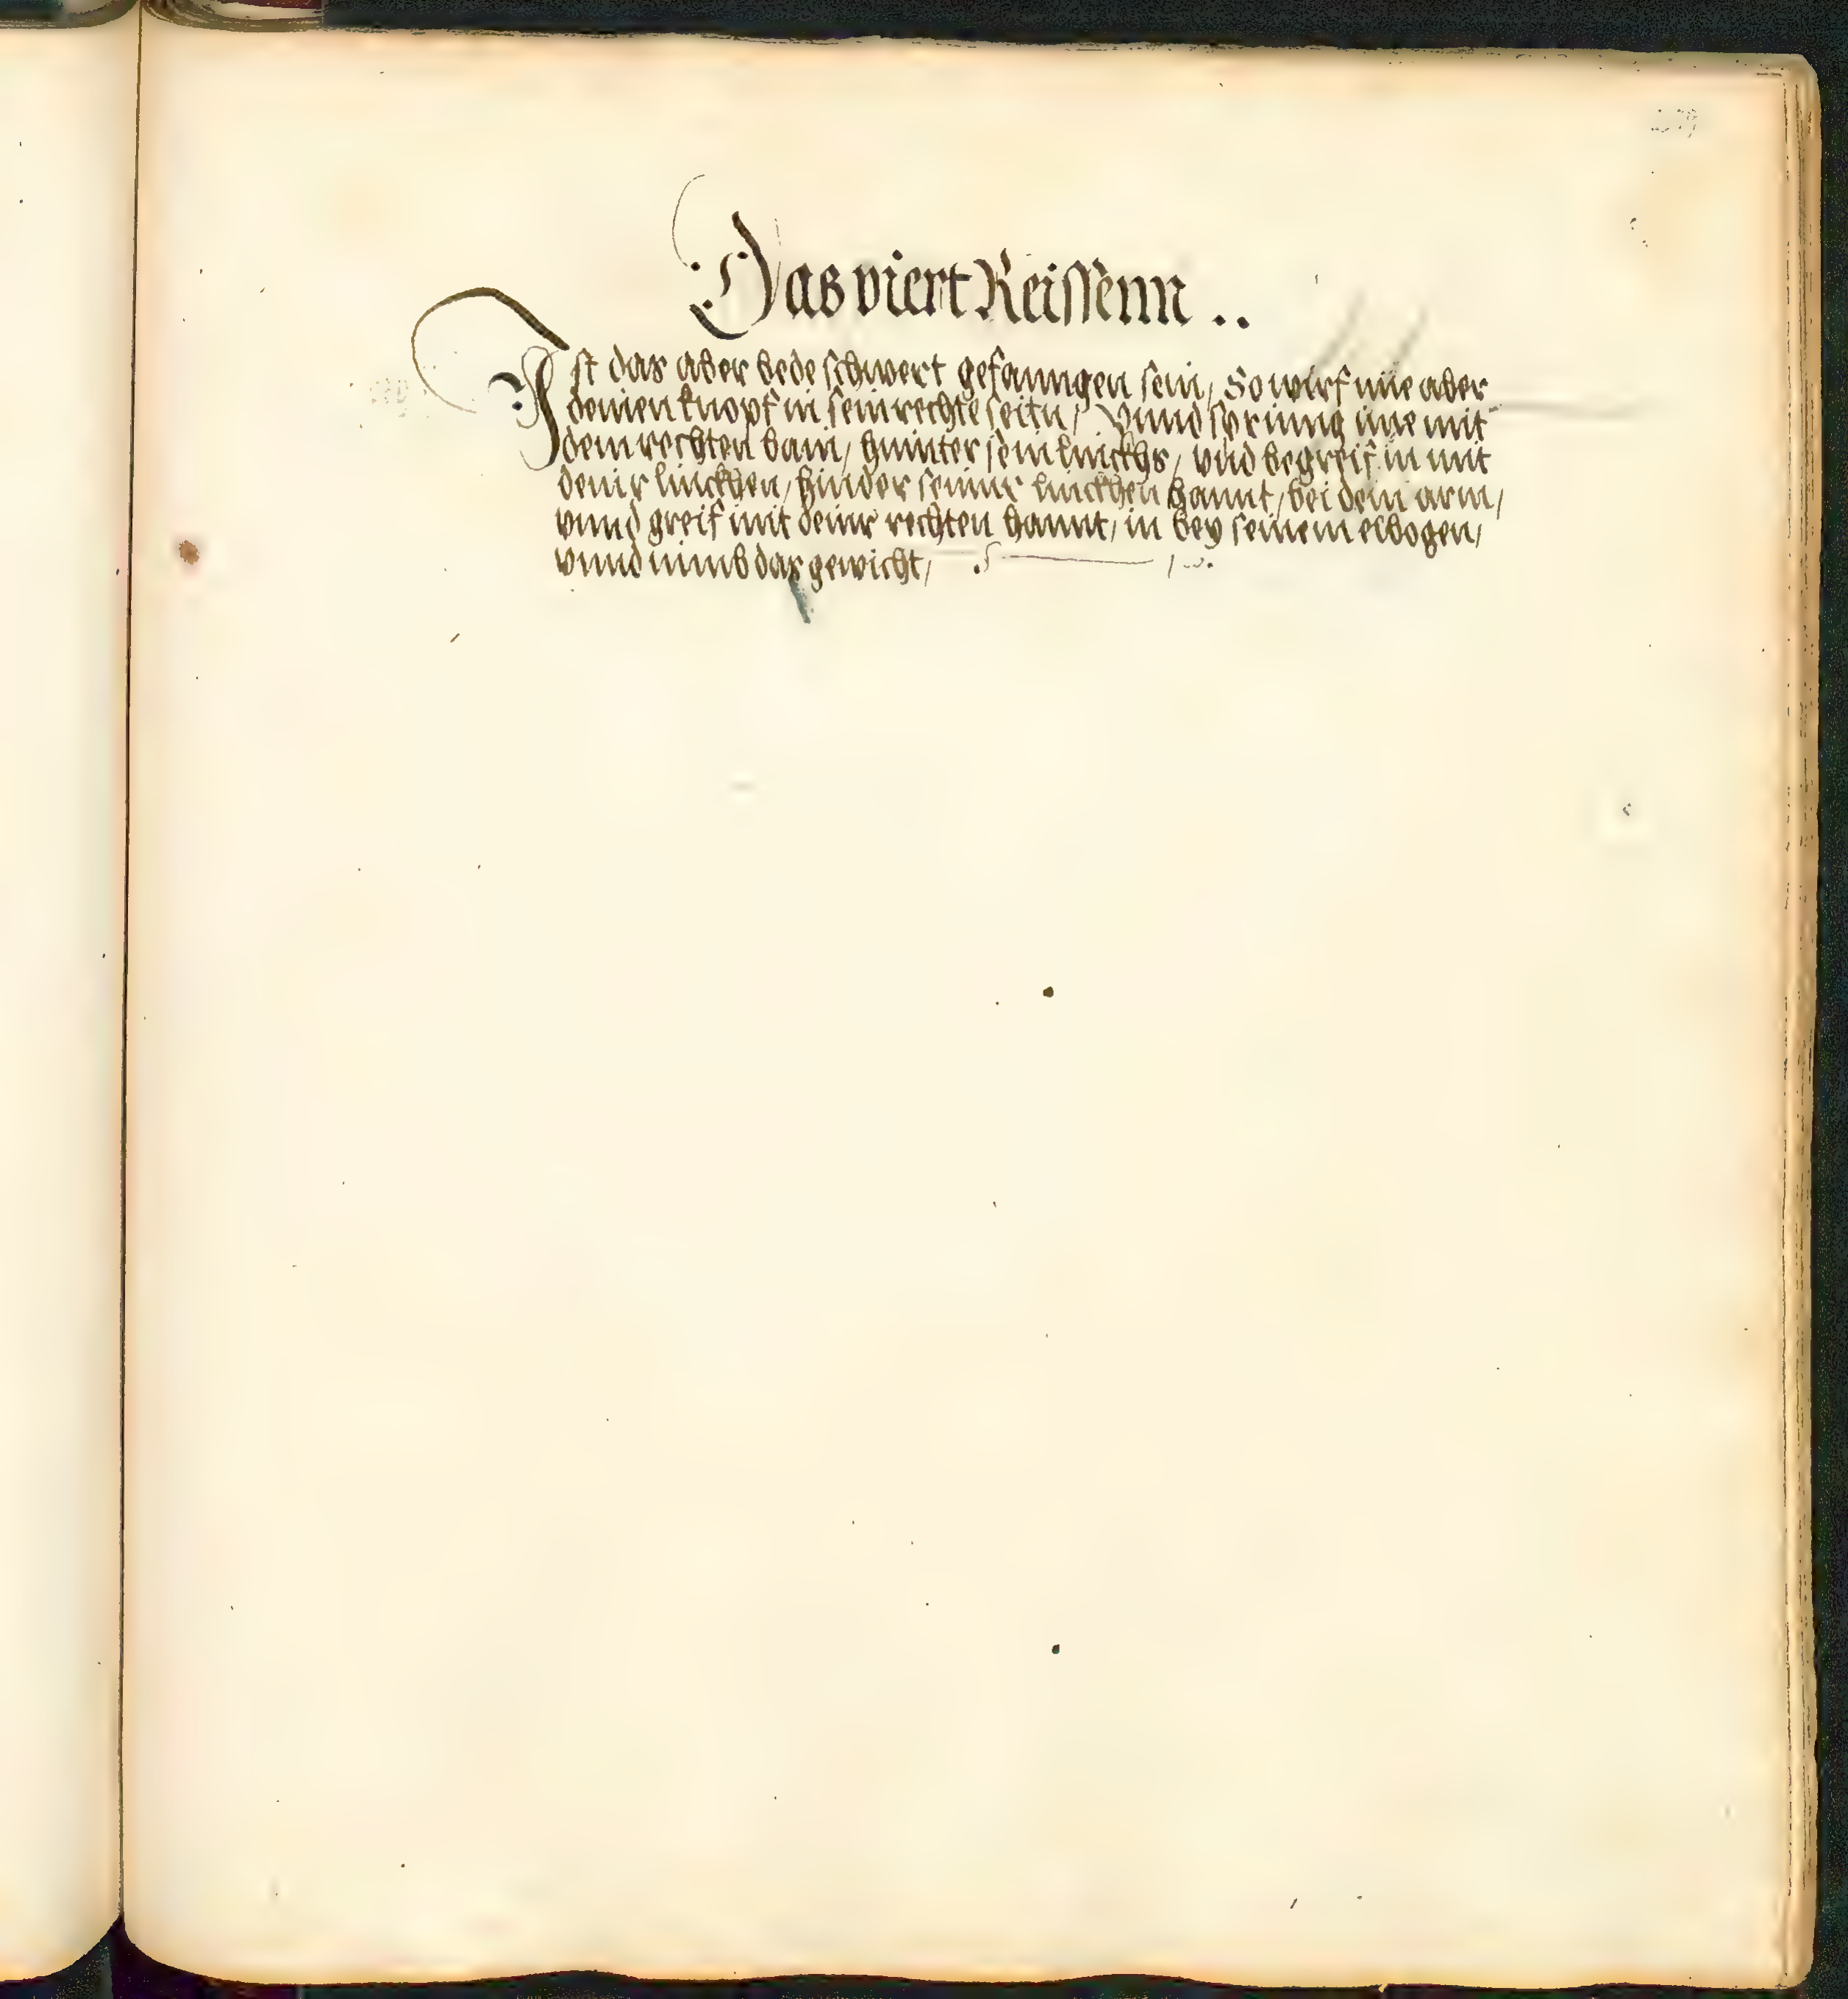 Das viert Reissenn ..
Ist das aber bede schwert gefanngen sein, So wirf ime aber
deinen knopf in sein rechte seitn, Vnnd sprinng ime mit
dem rechten bain, hinnter sein linckhs, vnd begreif in mit
deinr linckhen, hinder seinnr linckhen hannt, bei dem arm,
vnnd greif mit deinr rechten hannt, in bey seinem elbogen,
vnnd nimb das gewicht,